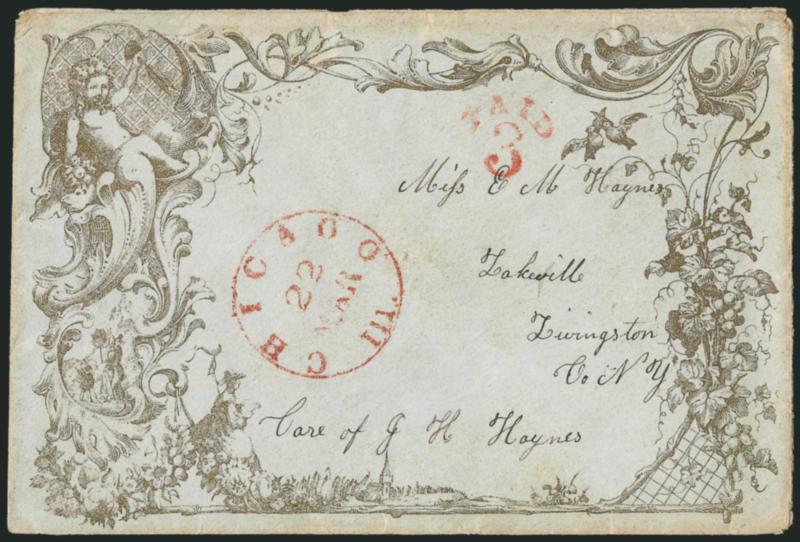 PAID
3
Miss E M Haynes
Lakville
Livingston
Co N Y
CHICAGO Ill.
22
MAR
Care of J H Haynes